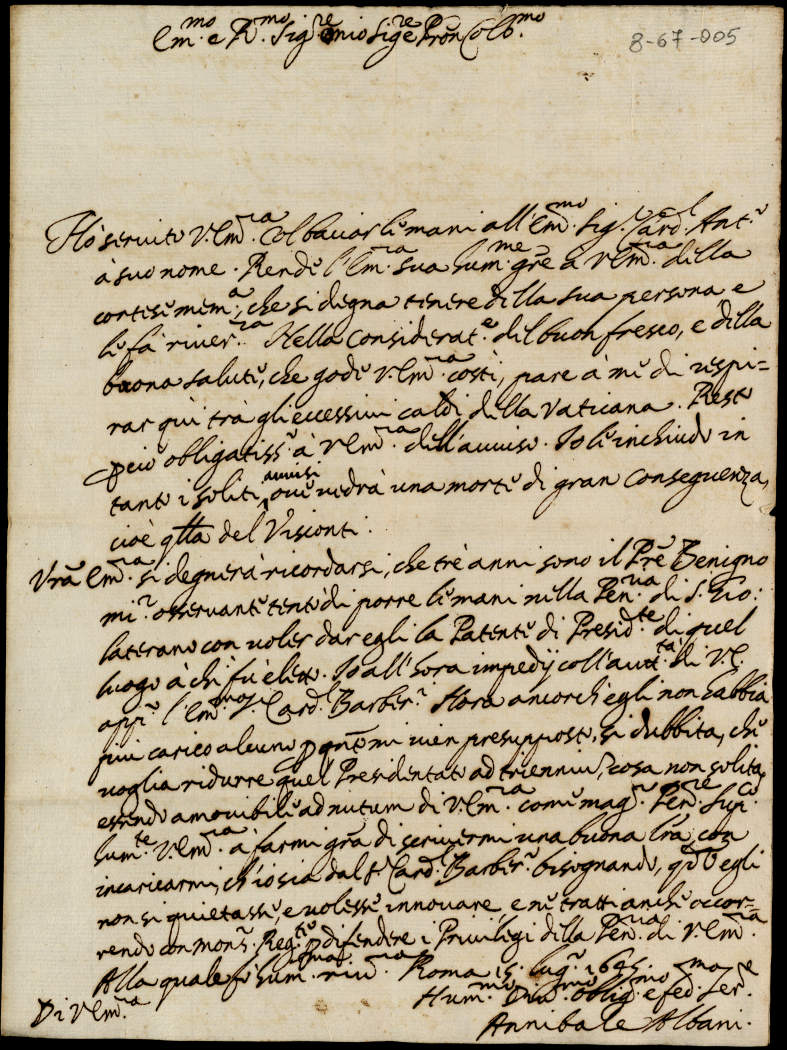 Em.mo e R.mo Sig.re mio Sig.re Prōn Colb.mo
8-67-005
Hò servito V. Em.za col baciar le mani all'Em.mo Sig. Card.l Ant.o
à suo nome. Rende l'Em.za sua hum.me grē à V. Em.za della
cortese mem.a, che si degna tenere della sua persona, e
le fà river.za Nella considerat.e del buon fresco, e della
buona salute, che gode V. Em.za costì, pare à me di respi=
rar quì trà gli eccessivi caldi della Vaticana. Resto
però obligatiss.o à V. Em.za dell'avviso. Io le inchiudo in
tanto i soliti avvisi, ove vedrà una morte di gran conseguenza,
cioè q̄lla del Visconti.
Vr̄a Em.za si degnerà ricordarsi, che trè anni sono il Prē Benigno
mi.r osservante tentò di porre le mani nella Pen.ria di S. Gio:
laterano con voler dar egli la Patente di Presid.te di quel
luogo à chi fù eletto. Io all'hora impedij coll'autt.tà di V. E.
app.o l'Em.mo Sig. Card.l Barber.o Hora ancorch'egli non habbia
più carico alcuno p q̄nto mi vien presupposto, si dubbita, che
voglia ridurre quel Presidentato ad trienniū, cosa non solita,
essendo amovibile ad nutum di V. Em.za come mag.r Pen.re Sup.co
hum.te V. Em.za à farmi grā di scrivermi una buona lrā, con
incaricarmi, ch'io sia dal S. Card.l Barber.o bisognando, q̄do egli
non si quietasse, e volesse innovare, e ne tratti anche occor=
rendo con mons.r Reg.te p difendere i Privilegi della Pen.ria di V. Em.za
Alla quale fò hum.ma riv.za Roma 15 lug.o 1645
Di V. Em.za
Hum.mo Div.mo oblig.mo e fed. Ser.e
Annibale Albani.